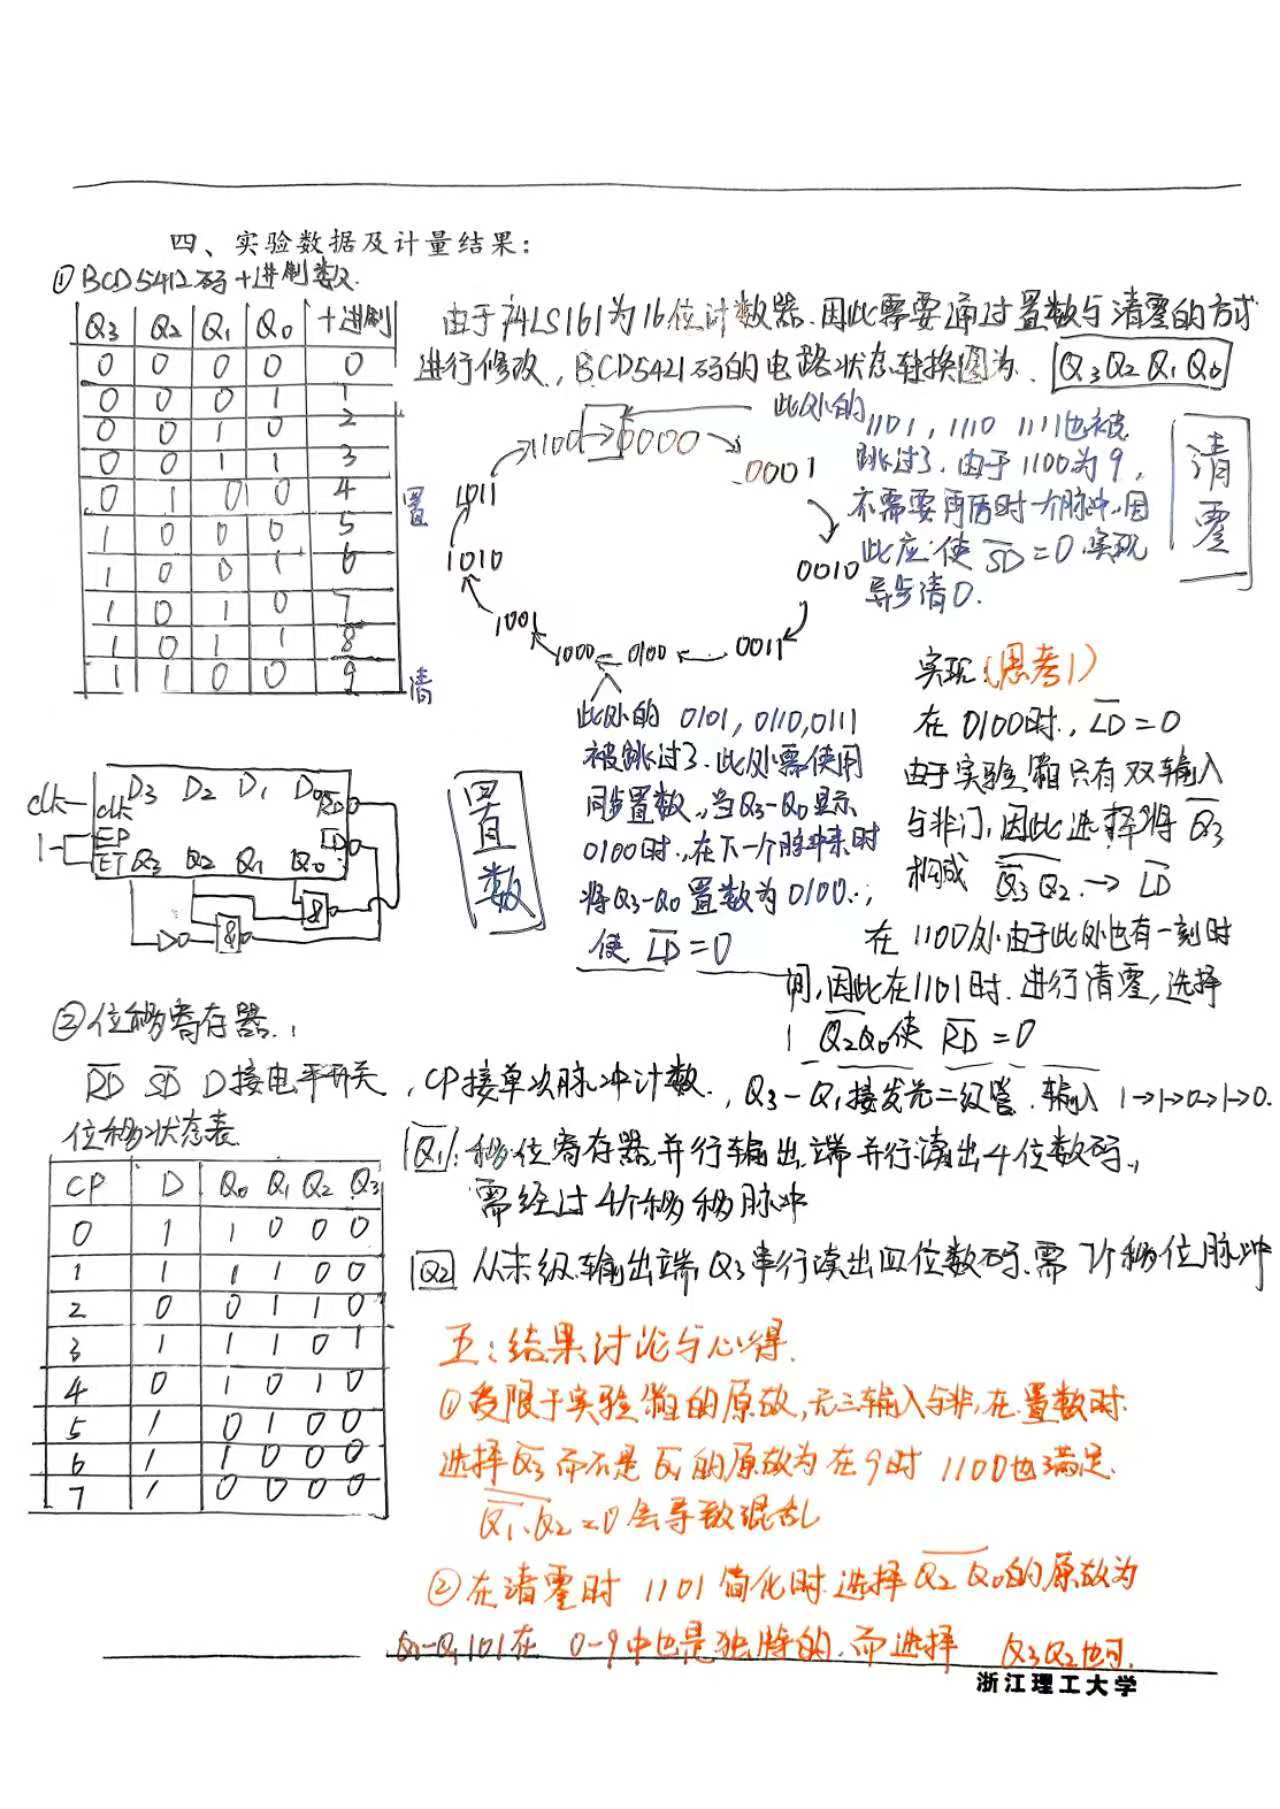 四、实验数据及计量结果:
① BCD5412码十进制数.
Q3 Q2 Q1 Q0 十进制
0 0 0 0 0
0 0 0 1 1
0 0 1 0 2
0 0 1 1 3
0 1 0 0 4 置
1 0 0 0 5
1 0 0 1 6
1 0 1 0 7
1 0 1 1 8
1 1 0 0 9 清
由于74LS161为16位计数器.因此需要通过置数与清零的方式
进行修改., BCD5421码的电路状态转换图为. Q3Q2Q1Q0
1100 → 0000
0001
0010
0011
0100
1000
1001
1010
1011
此处的1101, 1110 1111也被
跳过了.由于1100为9,
不需要再历时一个脉冲.因
此应使 S̅D̅=0.实现
异步清0.
清零
此处的 0101, 0110, 0111
被跳过了.此处需使用
同步置数.,当Q3-Q0显示
0100时.,在下一个脉冲来时
将Q3-Q0置数为0100.;
使 L̅D̅=0
置数
实现(思考1)
在0100时., L̅D̅=0
由于实验箱只有双输入
与非门,因此选择将 Q̅3
构成 Q̅3Q2 → L̅D̅
在1100处由于此处也有一刻时
间,因此在1101时.进行清零,选择
Q2Q0使 R̅D̅=0
clk clk D3 D2 D1 D0 RD
1 EP LD
ET Q3 Q2 Q1 Q0
& &
② 位移寄存器.
R̅D̅ S̅D̅ D接电平开关, CP接单次脉冲计数., Q3-Q1接发光二级管.输入 1→1→0→1→0.
位移状态表
CP D Q0 Q1 Q2 Q3
0 1 1 0 0 0
1 1 1 1 0 0
2 0 0 1 1 0
3 1 1 1 0 1
4 0 1 0 1 0
5 1 0 1 0 0
6 1 1 0 0 0
7 1 0 0 0 0
Q1:移位寄存器并行输出端并行读出4位数码.,
需经过4个移移脉冲
Q2 从末级输出端Q3串行读出四位数码.需7个移位脉冲
五:结果讨论与心得.
①受限于实验箱的原故,无三输入与非,在置数时.
选择Q̅3而不是Q̅1的原故为在9时 1100也满足.
Q̅1·Q2=0会导致混乱
②在清零时 1101简化时.选择Q2Q0的原故为
101在 0-9中也是独特的.而选择 Q3Q2也可.
浙江理工大学